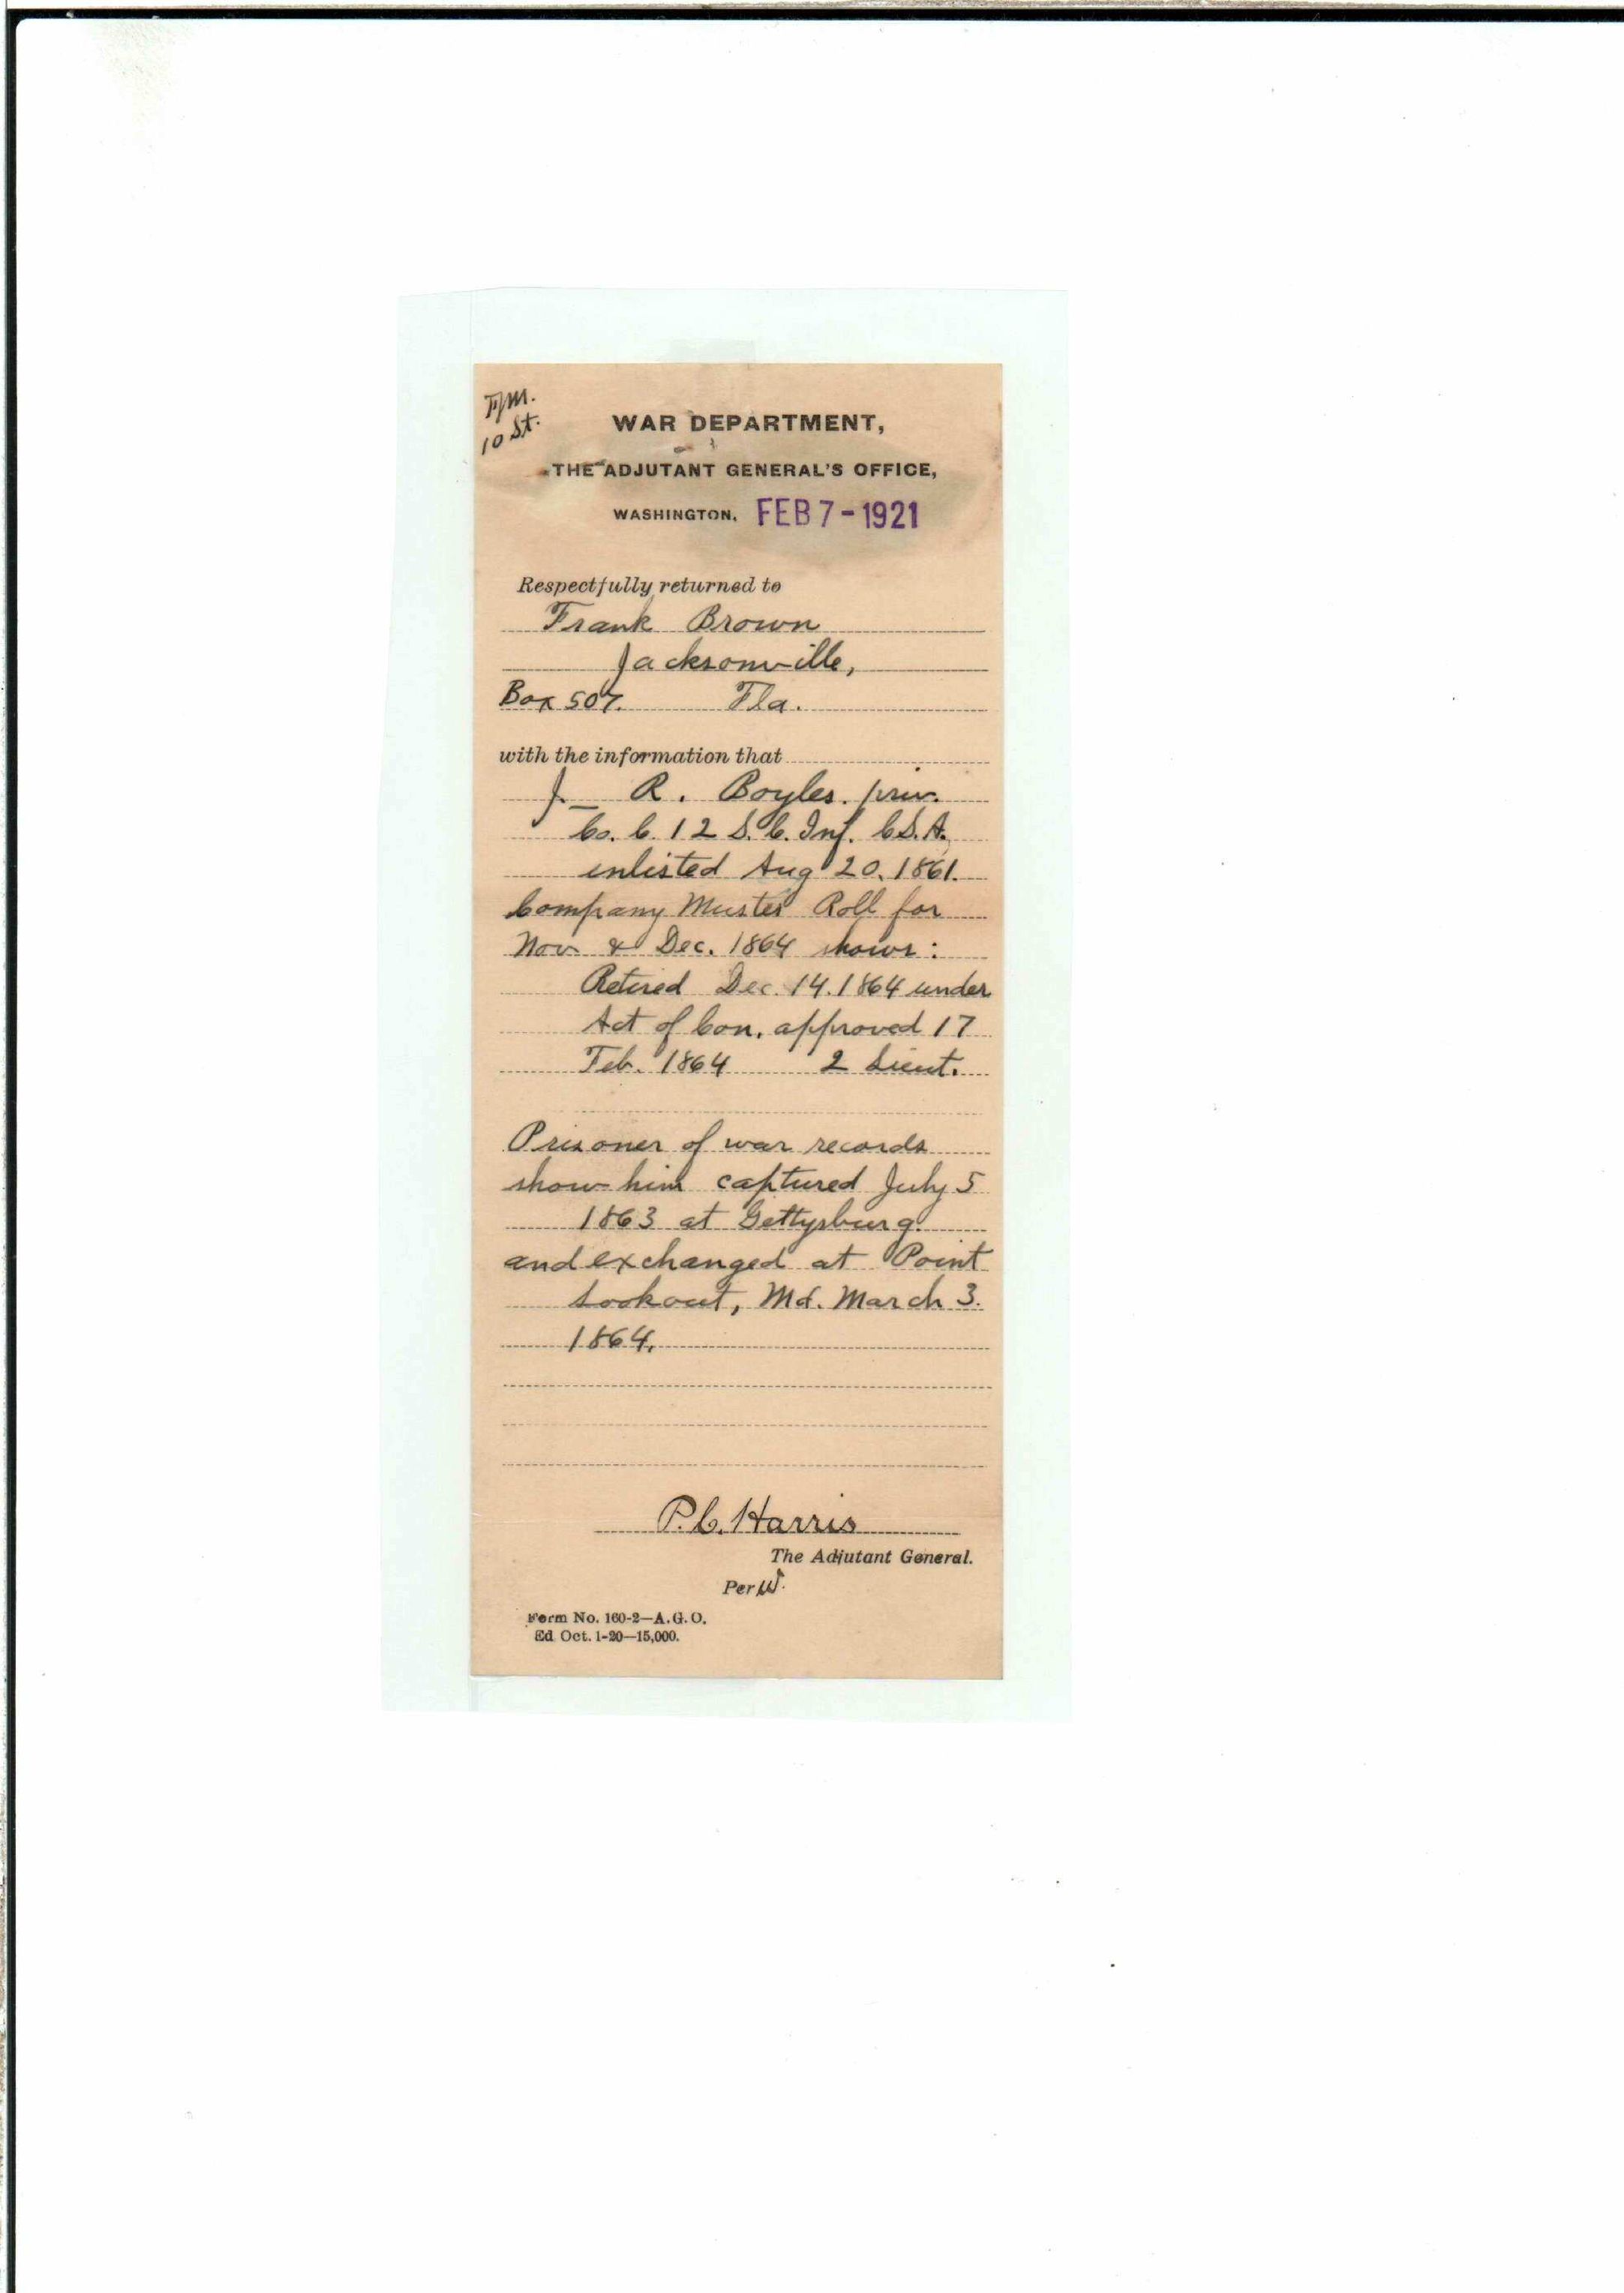 T/M.
10 St.
WAR DEPARTMENT,
THE ADJUTANT GENERAL'S OFFICE,
WASHINGTON, FEB 7-1921
Respectfully returned to
Frank Brown
Jacksonville,
Box 507. Fla.
with the information that
J. R. Boyles. priv.
Co. C. 12 S.C. Inf. C.S.A.
enlisted Aug 20, 1861.
Company Muster Roll for
Nov & Dec. 1864 shows:
Retired Dec. 14. 1864 under
Act of Con. approved 17
Feb. 1864 2 Lieut.
Prisoner of war records
show him captured July 5
1863 at Gettysburg.
and exchanged at Point
Lookout, Md. March 3.
1864.
P.C. Harris
The Adjutant General.
Per W.
Form No. 160-2—A.G.O.
Ed Oct. 1-20—15,000.